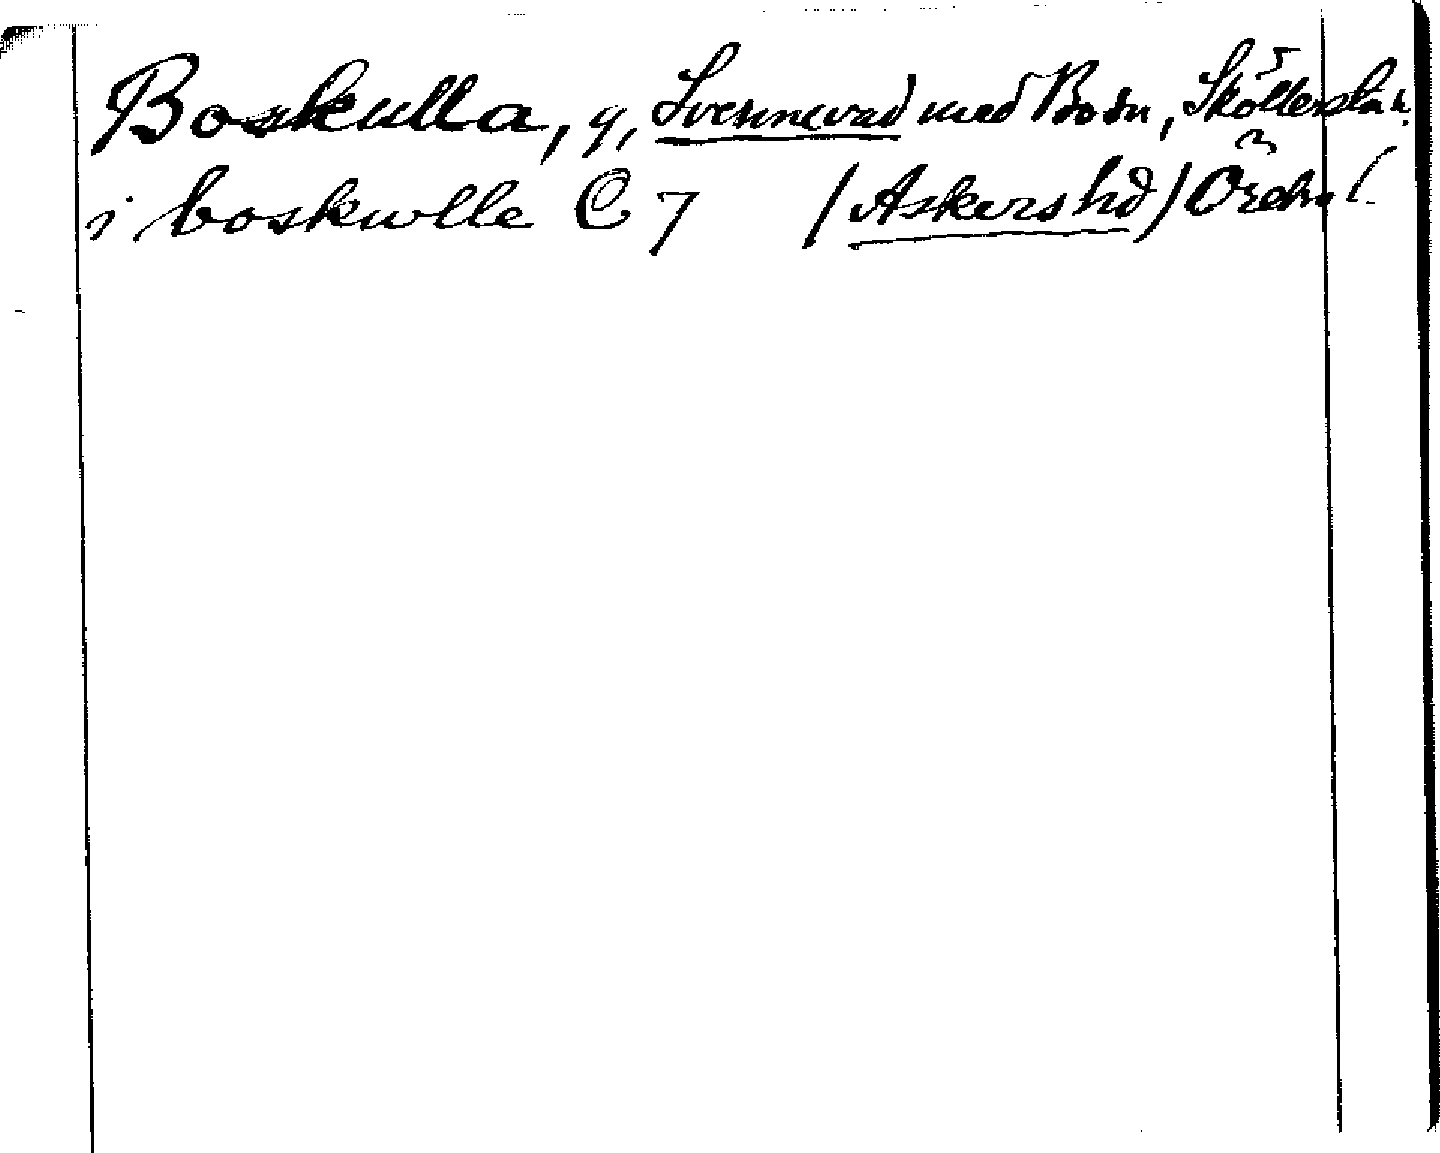 Boskulla, g, Svennevad med Bodn, Sköllersta h.
i boskulle C 7 (Askers hd) Örebro l.